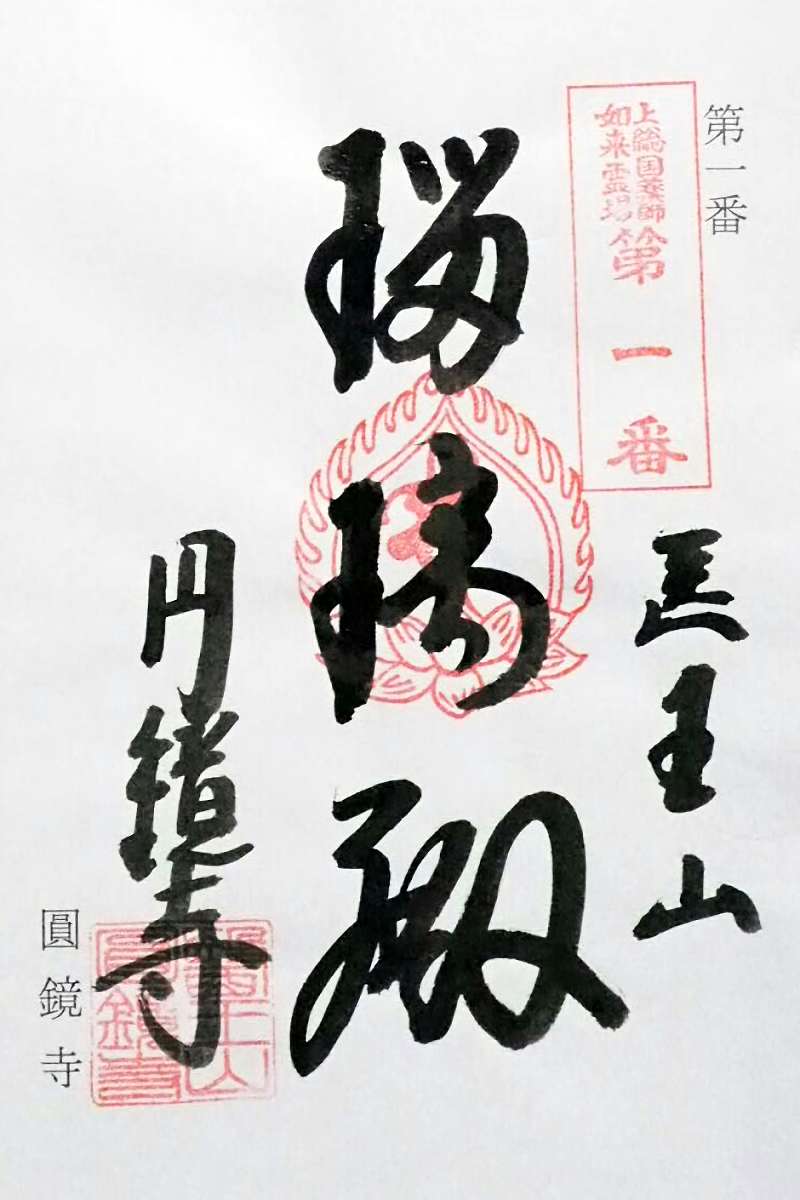 第一番
上総国薬師
如来霊場
第一番
医王山
瑠璃殿
円鏡寺
醫王山
圓鏡寺
圓鏡寺